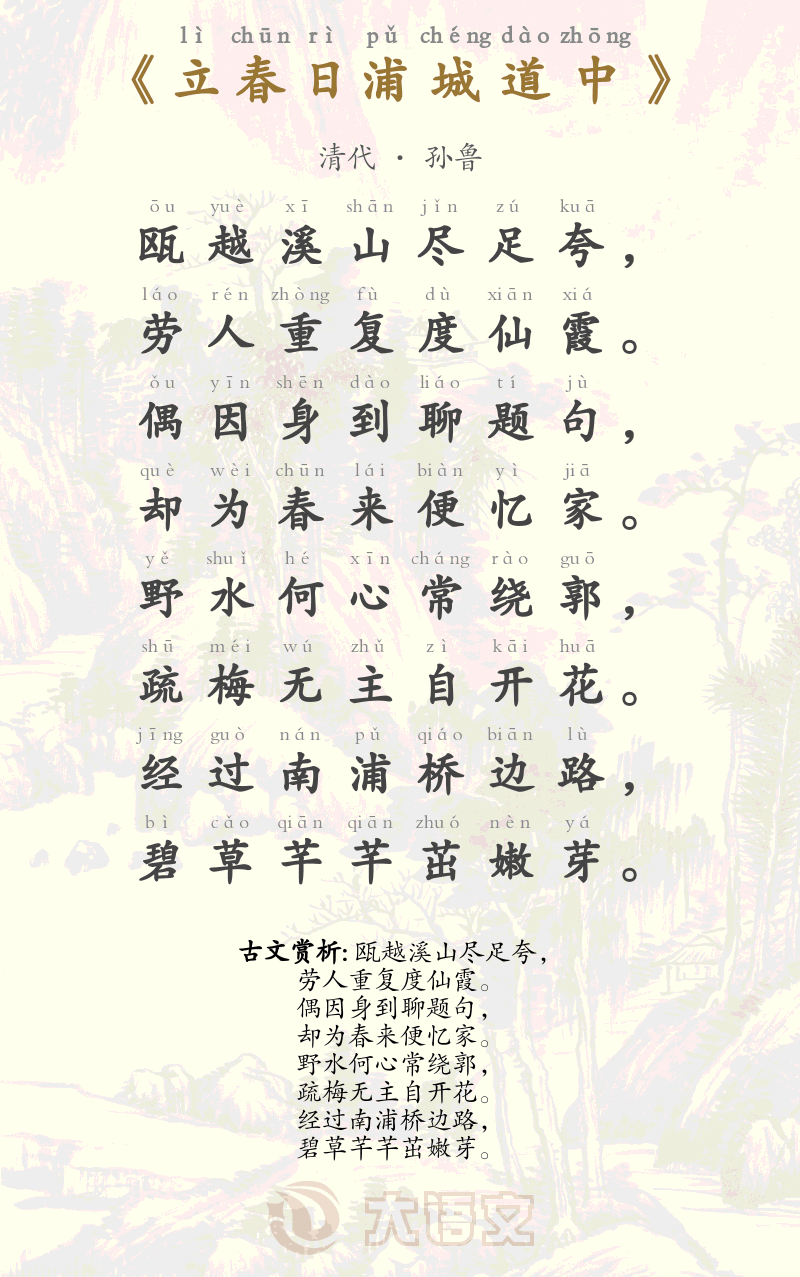 lì chūn rì pǔ chéng dào zhōng
《立春日浦城道中》
清代 · 孙鲁
ōu yuè xī shān jǐn zú kuā
瓯越溪山尽足夸，
láo rén zhòng fù dù xiān xiá
劳人重复度仙霞。
ǒu yīn shēn dào liáo tí jù
偶因身到聊题句，
què wèi chūn lái biàn yì jiā
却为春来便忆家。
yě shuǐ hé xīn cháng rào guō
野水何心常绕郭，
shū méi wú zhǔ zì kāi huā
疏梅无主自开花。
jīng guò nán pǔ qiáo biān lù
经过南浦桥边路，
bì cǎo qiān qiān zhuó nèn yá
碧草芊芊茁嫩芽。
古文赏析: 瓯越溪山尽足夸，
劳人重复度仙霞。
偶因身到聊题句，
却为春来便忆家。
野水何心常绕郭，
疏梅无主自开花。
经过南浦桥边路，
碧草芊芊茁嫩芽。
大语文